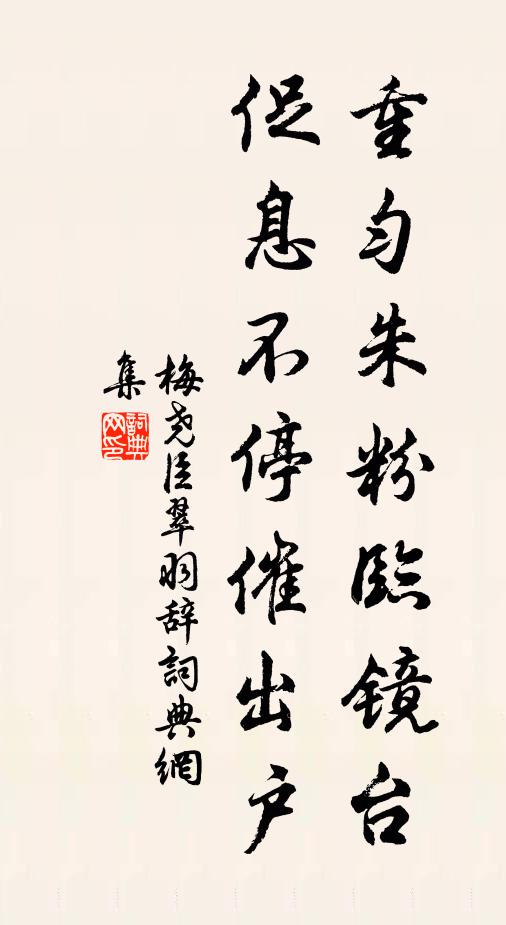 重匀朱粉臨镜台
促息不停催出户
梅尧臣翠羽辞詞典網
集
詞典
网印